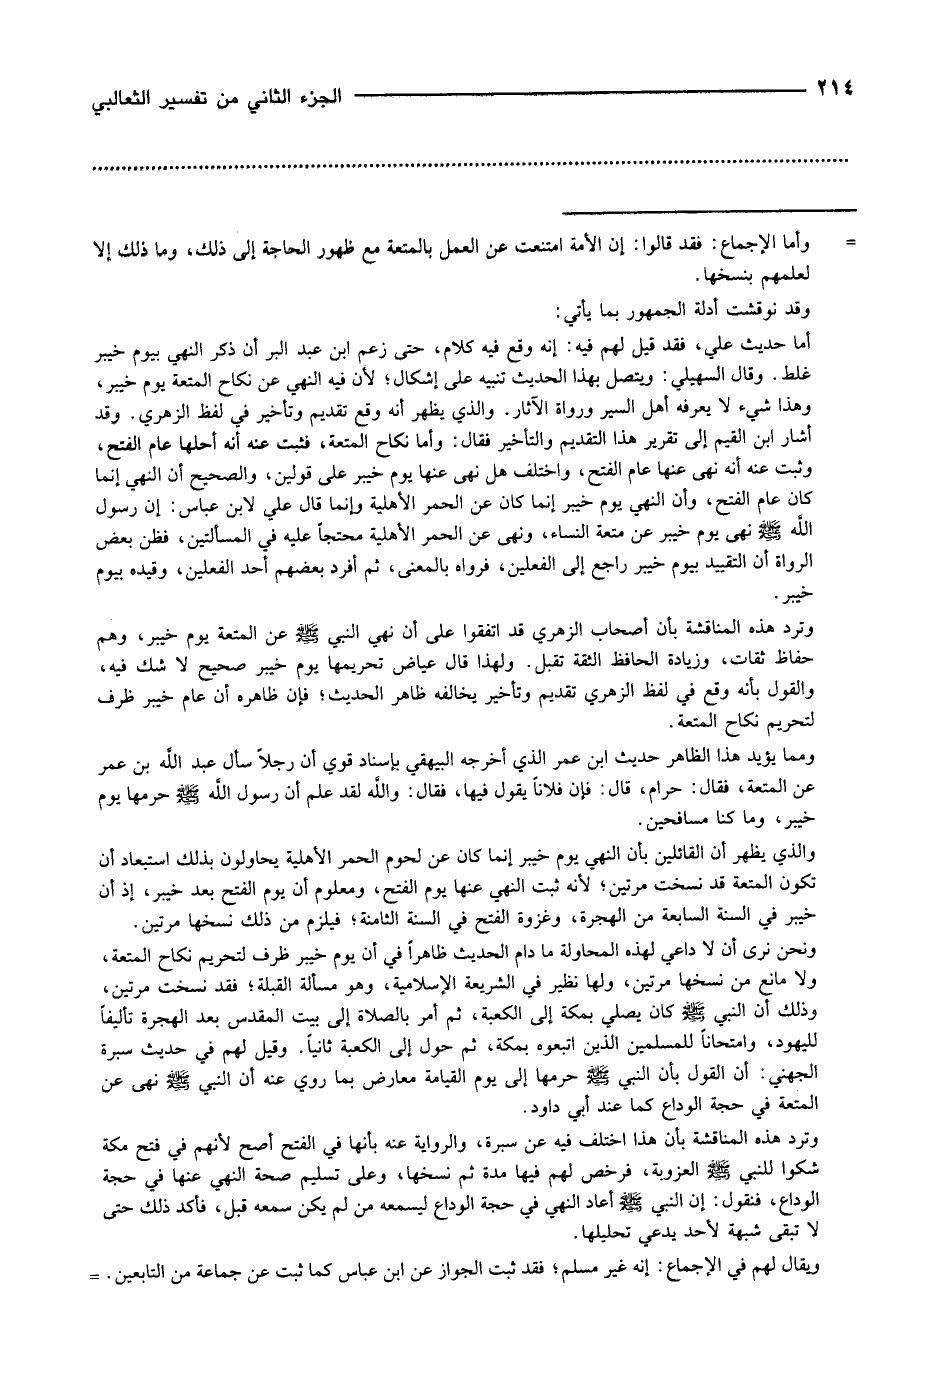 ٢١٤ الجزء الثاني من تفسير الثعالبي
= وأما الإجماع: فقد قالوا: إن الأمة امتنعت عن العمل بالمتعة مع ظهور الحاجة إلى ذلك، وما ذلك إلا
لعلمهم بنسخها.
وقد نوقشت أدلة الجمهور بما يأتي:
أما حديث علي، فقد قيل لهم فيه: إنه وقع فيه كلام، حتى زعم ابن عبد البر أن ذكر النهي بيوم خيبر
غلط. وقال السهيلي: ويتصل بهذا الحديث تنبيه على إشكال؛ لأن فيه النهي عن نكاح المتعة يوم خيبر،
وهذا شيء لا يعرفه أهل السير ورواة الآثار. والذي يظهر أنه وقع تقديم وتأخير في لفظ الزهري. وقد
أشار ابن القيم إلى تقرير هذا التقديم والتأخير فقال: وأما نكاح المتعة، فثبت عنه أنه أحلها عام الفتح،
وثبت عنه أنه نهى عنها عام الفتح، واختلف هل نهى عنها يوم خيبر على قولين، والصحيح أن النهي إنما
كان عام الفتح، وأن النهي يوم خيبر إنما كان عن الحمر الأهلية وإنما قال علي لابن عباس: إن رسول
اللَّه ﷺ نهى يوم خيبر عن متعة النساء، ونهى عن الحمر الأهلية محتجاً عليه في المسألتين، فظن بعض
الرواة أن التقييد بيوم خيبر راجع إلى الفعلين، فرواه بالمعنى، ثم أفرد بعضهم أحد الفعلين، وقيده بيوم
خيبر.
وترد هذه المناقشة بأن أصحاب الزهري قد اتفقوا على أن نهي النبي ﷺ عن المتعة يوم خيبر، وهم
حفاظ ثقات، وزيادة الحافظ الثقة تقبل. ولهذا قال عياض تحريمها يوم خيبر صحيح لا شك فيه،
والقول بأنه وقع في لفظ الزهري تقديم وتأخير يخالفه ظاهر الحديث؛ فإن ظاهره أن عام خيبر ظرف
لتحريم نكاح المتعة.
ومما يؤيد هذا الظاهر حديث ابن عمر الذي أخرجه البيهقي بإسناد قوي أن رجلاً سأل عبد اللَّه بن عمر
عن المتعة، فقال: حرام، قال: فإن فلاناً يقول فيها، فقال: واللَّه لقد علم أن رسول اللَّه ﷺ حرمها يوم
خيبر، وما كنا مسافحين.
والذي يظهر أن القائلين بأن النهي يوم خيبر إنما كان عن لحوم الحمر الأهلية يحاولون بذلك استبعاد أن
تكون المتعة قد نسخت مرتين؛ لأنه ثبت النهي عنها يوم الفتح، ومعلوم أن يوم الفتح بعد خيبر، إذ أن
خيبر في السنة السابعة من الهجرة، وغزوة الفتح في السنة الثامنة؛ فيلزم من ذلك نسخها مرتين.
ونحن نرى أن لا داعي لهذه المحاولة ما دام الحديث ظاهراً في أن يوم خيبر ظرف لتحريم نكاح المتعة،
ولا مانع من نسخها مرتين، ولها نظير في الشريعة الإسلامية، وهو مسألة القبلة؛ فقد نسخت مرتين،
وذلك أن النبي ﷺ كان يصلي بمكة إلى الكعبة، ثم أمر بالصلاة إلى بيت المقدس بعد الهجرة تأليفاً
لليهود، وامتحاناً للمسلمين الذين اتبعوه بمكة، ثم حول إلى الكعبة ثانياً. وقيل لهم في حديث سبرة
الجهني: أن القول بأن النبي ﷺ حرمها إلى يوم القيامة معارض بما روي عنه أن النبي ﷺ نهى عن
المتعة في حجة الوداع كما عند أبي داود.
وترد هذه المناقشة بأن هذا اختلف فيه عن سبرة، والرواية عنه بأنها في الفتح أصح لأنهم في فتح مكة
شكوا للنبي ﷺ العزوبة، فرخص لهم فيها مدة ثم نسخها، وعلى تسليم صحة النهي عنها في حجة
الوداع، فنقول: إن النبي ﷺ أعاد النهي في حجة الوداع ليسمعه من لم يكن سمعه قبل، فأكد ذلك حتى
لا تبقى شبهة لأحد يدعي تحليلها.
ويقال لهم في الإجماع: إنه غير مسلم؛ فقد ثبت الجواز عن ابن عباس كما ثبت عن جماعة من التابعين. =